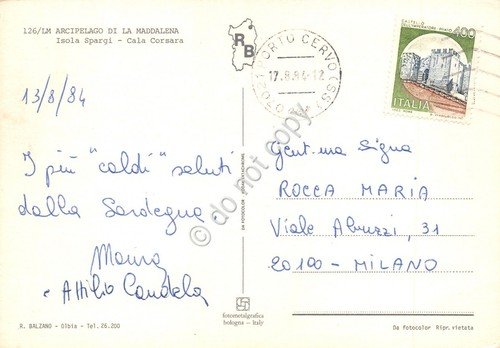 126/LM ARCIPELAGO DI LA MADDALENA
Isola Spargi - Cala Corsara
R
B
PORTO CERVO (SS)
17.8.84-12
CASTELLO
DELL'IMPERATORE PRATO
400
ITALIA
13/8/84
I più "caldi" saluti
dalla Sardegna.
Maura
e Attilio Candela
Gent.ma Sig.na
ROCCA MARIA
Viale Abruzzi, 31
20100 - MILANO
DA FOTOCOLOR
fotometalgrafica
bologna - italy
R. BALZANO - Olbia - Tel. 26.200
Da fotocolor Ripr. vietata
do not copy